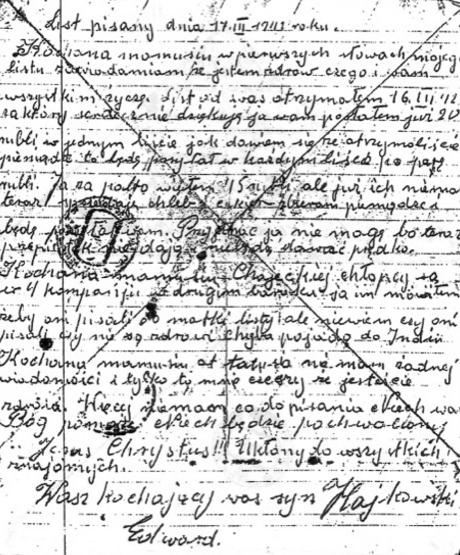 List pisany dnia 17.III 1942 roku.
Kochana mamusiu w pierwszych słowach mojego
listu zawiadamiam że jestem zdrów czego i wam
wszystkim życzę. List od was otrzymałem 16.III 42
za który serdecznie dziękuję ja wam posłałem już 20
rubli w jednym liście jak dawiem się że otrzymaliście
pieniądze to będę posyłał w każdym liście po parę
rubli. Ja za palto wziąłem 15 rubli ale już ich niema
teraz chleb i cukier zbieram pieniądze i
będę posyłał wam. Przyjechać ja nie mogę bo teraz
przepustek nie dają i muszę prędko.
Kochana mamusiu Chojeckiej chłopcy są
w 4 kompanji w drugim ja im mówiłem
żeby oni pisali do matki listy ale niewiem czy oni
pisali czy nie są zdrowi chyba pojadą do Indii
Kochana mamusiu od tatusia nie mam żadnej
wiadomości i tylko to mnie cieszy że jesteście
zdrowi. Więcej niemam co do pisania niech was
Bóg niech będzie pochwalony
Jezus Chrystus!!! Ukłony do wszystkich
znajomych.
Wasz kochający was syn Hajkowski
Edward.